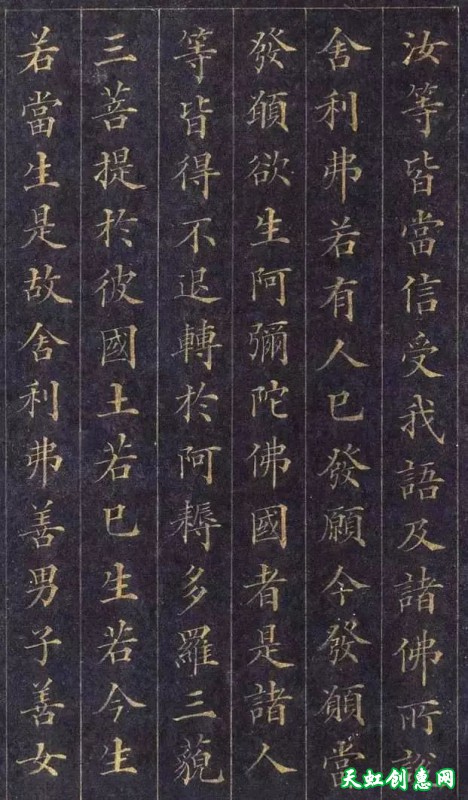 汝等皆當信受我語及諸佛所說
舍利弗若有人已發願今發願當
發願欲生阿彌陀佛國者是諸人
等皆得不退轉於阿耨多羅三藐
三菩提於彼國土若已生若今生
若當生是故舍利弗善男子善女
天虹创意网